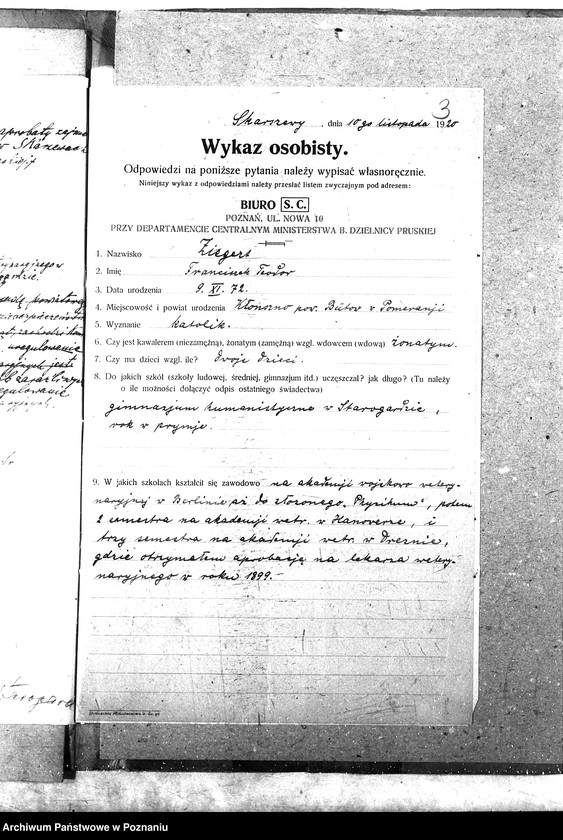 3
Skarszewy, dnia 10go listopada 1920
Wykaz osobisty.
Odpowiedzi na poniższe pytania należy wypisać własnoręcznie.
Niniejszy wykaz z odpowiedziami należy przesłać listem zwyczajnym pod adresem:
BIURO S. C.
POZNAŃ, UL. NOWA 10
PRZY DEPARTAMENCIE CENTRALNYM MINISTERSTWA B. DZIELNICY PRUSKIEJ
1. Nazwisko Ziegert
2. Imię Franciszek Teodor
3. Data urodzenia 9. XI. 72.
4. Miejscowość i powiat urodzenia Kłonczno pow. Bütow v Pomeranji
5. Wyznanie katolik.
6. Czy jest kawalerem (niezamężną), żonatym (zamężną) wzgl. wdowcem (wdową) żonatym.
7. Czy ma dzieci wzgl. ile? dwoje dzieci.
8. Do jakich szkół (szkoły ludowej, średniej, gimnazjum itd.) uczęszczał? jak długo? (Tu należy
o ile możności dołączyć odpis ostatniego świadectwa)
gimnazjum humanistyczne w Starogardzie,
rok w prymje.
9. W jakich szkołach kształcił się zawodowo na akademji wojskowo wetery-
naryjnej v Berlinie, aż do złożonego "Physikum", potem
2 semestra na akademji wetr. v Hanoverze, i
trzy semestra na akademji wetr. v Dreznie,
gdzie otrzymałem aprobację na lekarza wetery-
naryjnego w roku 1899.
Archiwum Państwowe w Poznaniu